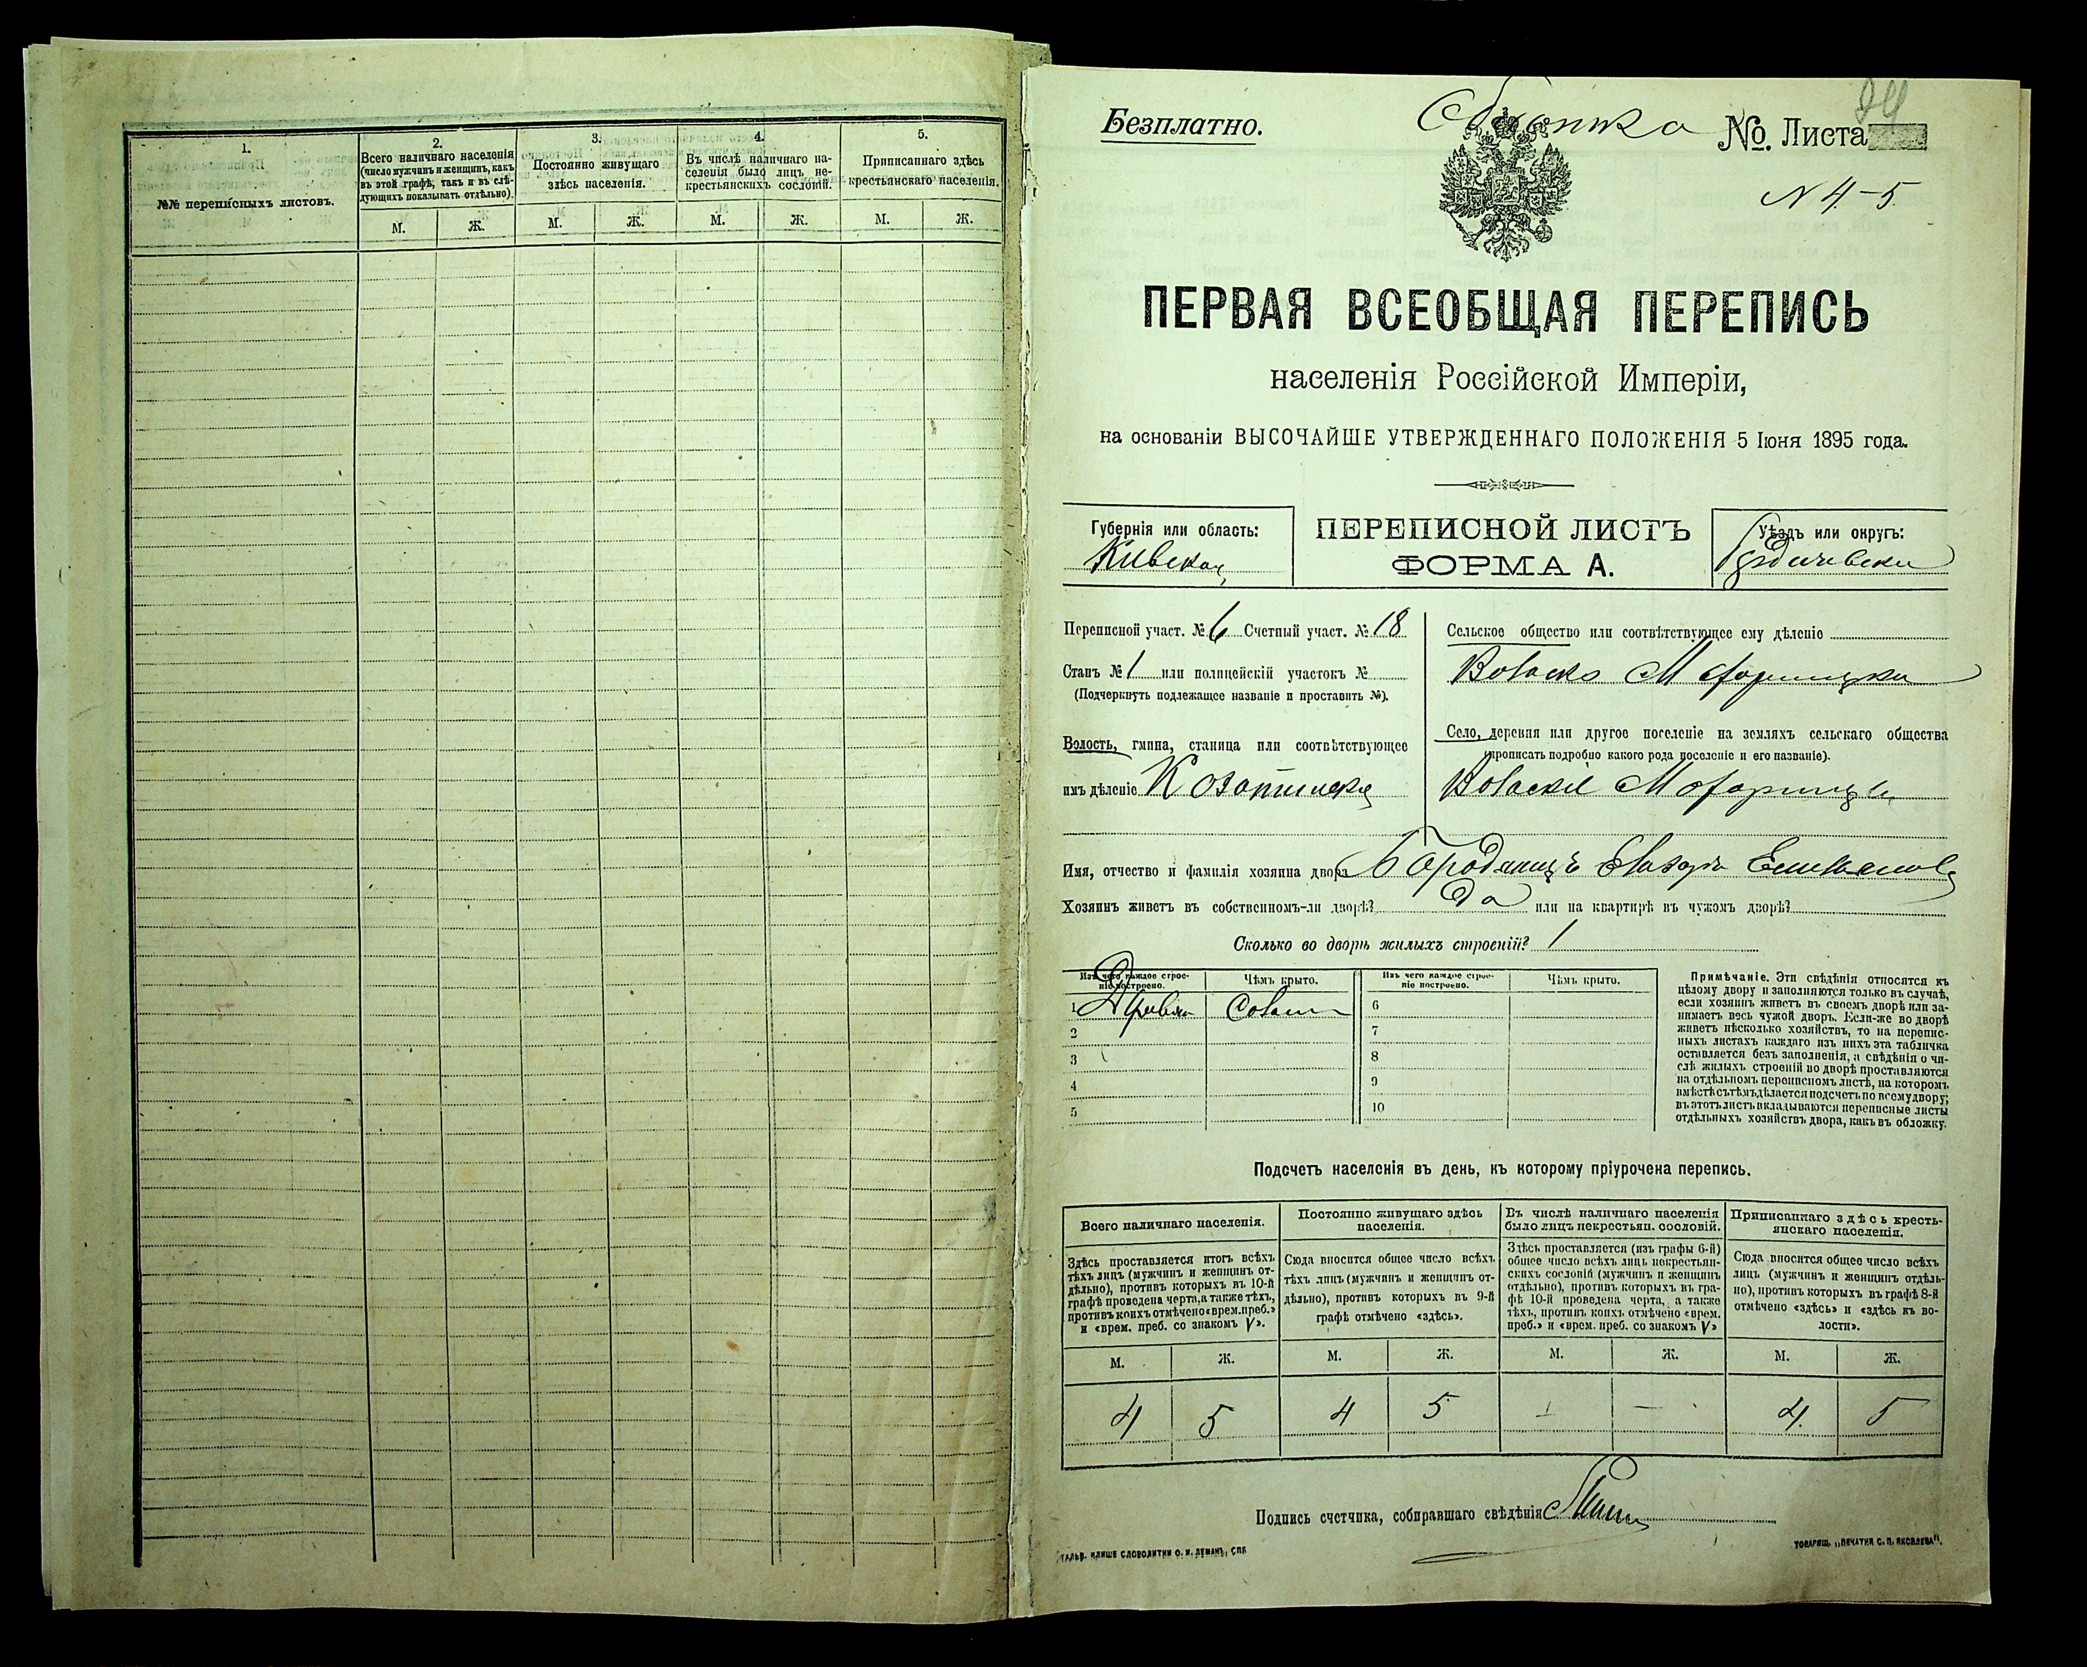 1.
№№ переписныхъ листовъ.
2.
Всего наличнаго населенія
(число мужчинъ и женщинъ, какъ
въ этой графѣ, такъ и въ слѣ-
дующихъ показывать отдѣльно).
3.
Постоянно живущаго
здѣсь населенія.
4.
Въ числѣ наличнаго на-
селенія было лицъ не-
крестьянскихъ сословій.
5.
Приписаннаго здѣсь
крестьянскаго населенія.
М. Ж. М. Ж. М. Ж. М. Ж.
Безплатно.
№. Листа
N 4-5.
ПЕРВАЯ ВСЕОБЩАЯ ПЕРЕПИСЬ
населенія Россійской Имперіи,
на основаніи ВЫСОЧАЙШЕ УТВЕРЖДЕННАГО ПОЛОЖЕНІЯ 5 Іюня 1895 года.
Губернія или область:
Киевская
ПЕРЕПИСНОЙ ЛИСТЪ
ФОРМА А.
Уѣздъ или округъ:
Бердичевски
Переписной участ. № 6 Счетный участ. № 18
Станъ № 1 или полицейскій участокъ №
(Подчеркнуть подлежащее названіе и проставить №).
Волость, гмина, станица или соотвѣтствующее
имъ дѣленіе
Сельское общество или соотвѣтствующее ему дѣленіе
Село, деревня или другое поселеніе на земляхъ сельскаго общества
(прописать подробно какого рода поселеніе и его названіе).
Имя, отчество и фамилія хозяина двора
Хозяинъ живетъ въ собственномъ-ли дворѣ? Да или на квартирѣ въ чужомъ дворѣ?
Сколько во дворѣ жилыхъ строеній? 1
Изъ чего каждое строе-
ніе построено.
Чѣмъ крыто.
Изъ чего каждое строе-
ніе построено.
Чѣмъ крыто.
1 6
2 7
3 8
4 9
5 10
Примѣчаніе. Эти свѣдѣнія относятся къ
цѣлому двору и заполняются только въ случаѣ,
если хозяинъ живетъ въ своемъ дворѣ или за-
нимаетъ весь чужой дворъ. Если-же во дворѣ
живетъ нѣсколько хозяйствъ, то на перепис-
ныхъ листахъ каждаго изъ нихъ эта табличка
оставляется безъ заполненія, а свѣдѣнія о чи-
слѣ жилыхъ строеній во дворѣ проставляются
на отдѣльномъ переписномъ листѣ, на которомъ
вмѣстѣ съ тѣмъ дѣлается подсчетъ по всему двору;
въ этотъ листъ вкладываются переписные листы
отдѣльныхъ хозяйствъ двора, какъ въ обложку.
Подсчетъ населенія въ день, къ которому пріурочена перепись.
Всего наличнаго населенія.
Здѣсь проставляется итогъ всѣхъ
тѣхъ лицъ (мужчинъ и женщинъ от-
дѣльно), противъ которыхъ въ 10-й
графѣ проведена черта, а также тѣхъ,
противъ коихъ отмѣчено «врем. преб.»
и «врем. преб. со знакомъ V».
Постоянно живущаго здѣсь
населенія.
Сюда вносится общее число всѣхъ
тѣхъ лицъ (мужчинъ и женщинъ от-
дѣльно), противъ которыхъ въ 9-й
графѣ отмѣчено «здѣсь».
Въ числѣ наличнаго населенія
было лицъ некрестьян. сословій.
Здѣсь проставляется (изъ графы 6-й)
общее число всѣхъ лицъ некрестьян-
скихъ сословій (мужчинъ и женщинъ
отдѣльно), противъ которыхъ въ гра-
фѣ 10-й проведена черта, а также
тѣхъ, противъ коихъ отмѣчено «врем.
преб.» и «врем. преб. со знакомъ V»
Приписаннаго здѣсь кресть-
янскаго населенія.
Сюда вносится общее число всѣхъ
лицъ (мужчинъ и женщинъ отдѣль-
но), противъ которыхъ въ графѣ 8-й
отмѣчено «здѣсь» и «здѣсь къ во-
лости».
М. Ж. М. Ж. М. Ж. М. Ж.
4 5 4 5 - - 4. 5
Подпись счетчика, собиравшаго свѣдѣнія
ГАЛЬВ. КЛИШЕ СЛОВОЛИТНИ О. И. ЛЕМАНЪ, СПБ
ТОВАРИЩ. „ПЕЧАТНЯ С. П. ЯКОВЛЕВА".